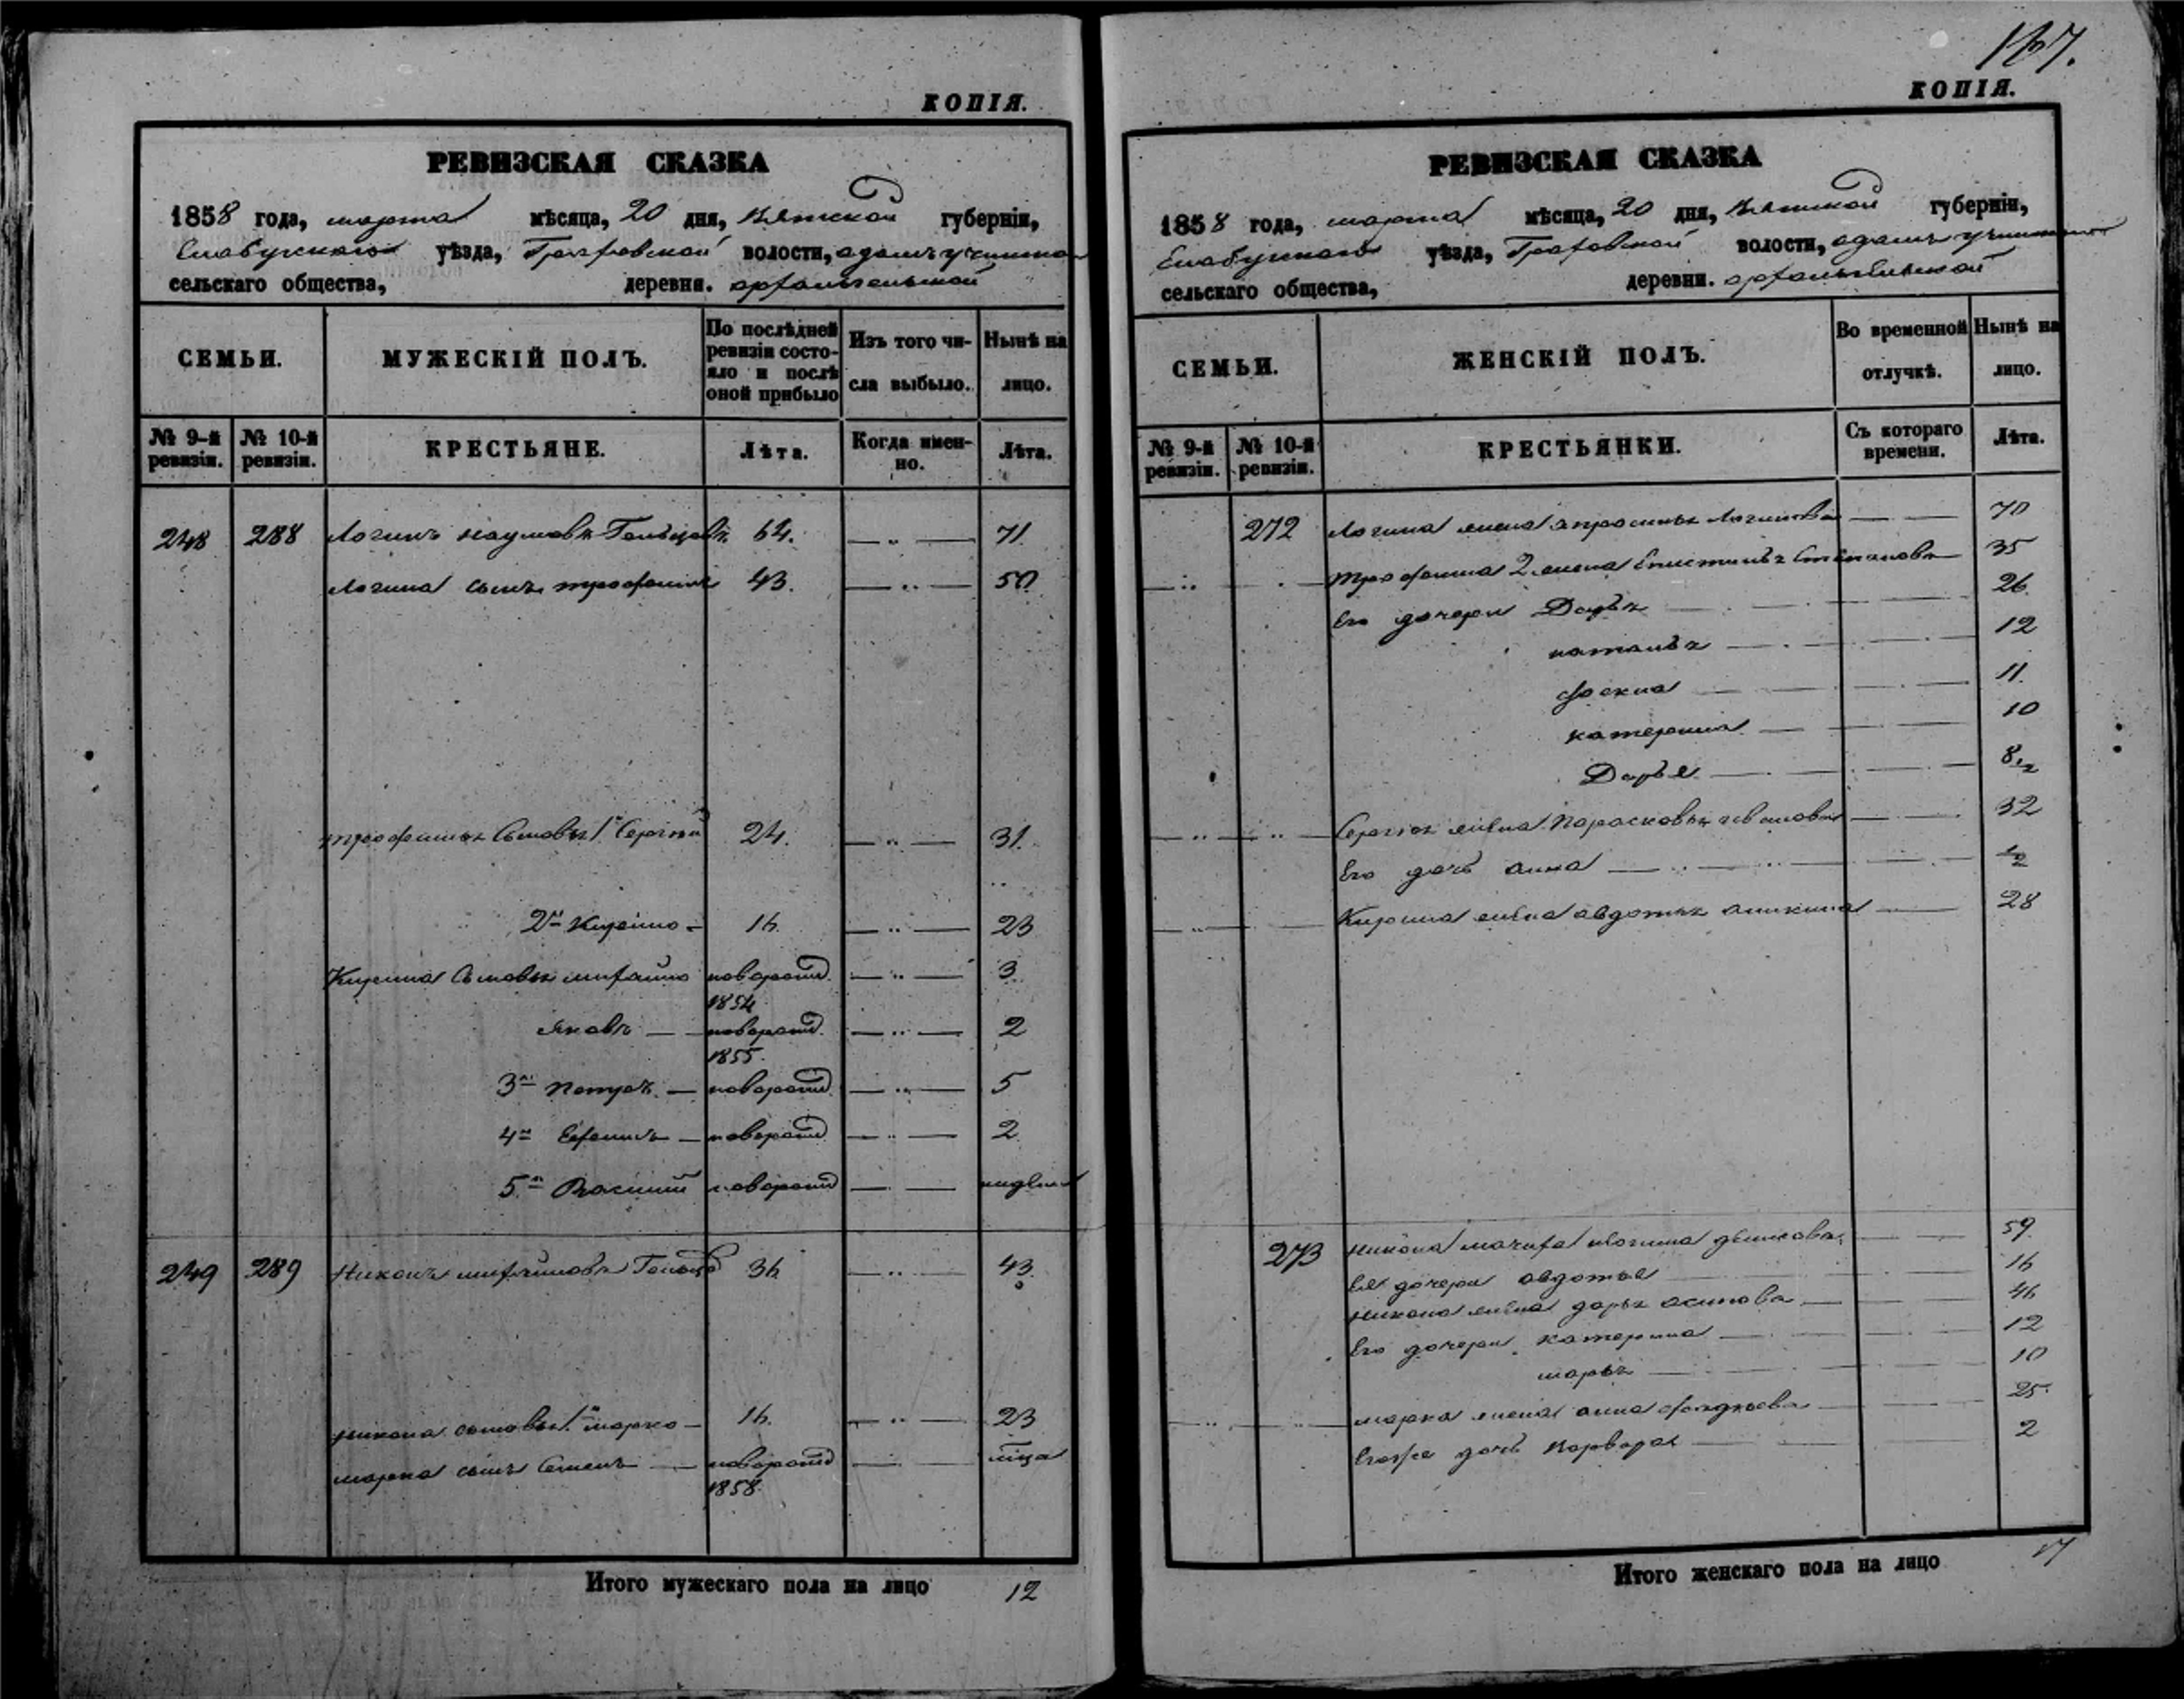 КОПІЯ.
РЕВИЗСКАЯ СКАЗКА
1858 года, марта мѣсяца, 20 дня, Вятской губерніи,
Елабужскаго уѣзда, Граховской волости,
сельскаго общества, деревни. Архангельской
СЕМЬИ.
МУЖЕСКІЙ ПОЛЪ.
По послѣдней ревизіи состо-
яло и послѣ оной прибыло
Изъ того чи-
сла выбыло.
Нынѣ на
лицо.
№ 9-й ревизіи.
№ 10-й ревизіи.
КРЕСТЬЯНЕ.
Лѣта.
Когда имен-
но.
Лѣта.
248 288 Логинъ Наумовъ 64. 71
Логина сынъ Трофимъ 43. 50
Трофима сыновья 1й Сергѣй 24. 31.
2й Кирило 16. 23
Кирила сыновья Михайло новорожд. 1854 3
Яковъ новорожд. 1855. 2
3й Петръ новорожд. 5
4й Ефимъ новорожд. 2
5й Василій новорожд. недели
249 289 Никонъ 36 43
Никона сыновья 1й Марко 16. 23
Марка сынъ Семенъ новорожд. 1858
Итого мужескаго пола на лицо 12
КОПІЯ.
РЕВИЗСКАЯ СКАЗКА
1858 года, марта мѣсяца, 20 дня, Вятской губерніи,
Елабужскаго уѣзда, Граховской волости,
сельскаго общества, деревни. Архангельской
СЕМЬИ.
ЖЕНСКІЙ ПОЛЪ.
Во временной
отлучкѣ.
Нынѣ на
лицо.
№ 9-й ревизіи.
№ 10-й ревизіи.
КРЕСТЬЯНКИ.
Съ котораго
времени.
Лѣта.
272 Логина жена Логинова 70
Трофима 2 жена Степанова 35
Его дочери Дарья 26
Наталья 12
Фекла 11.
Катерина 10
Дарья 8 1/2
Сергѣя жена Парасковья Иванова 32
Его дочь Анна 1/2
Кирила жена Авдотья Аникина 28
273 Никона мачиха 59.
Ея дочери Авдотья 16
Никона жена Дарья Осипова 46
Его дочери Катерина 12
Марья 10
Марка жена Анна Фаддѣева 25
Его же дочь Варвара 2
Итого женскаго пола на лицо 17